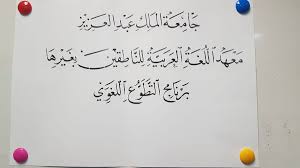 جَامِعَة المَلِك عَبد العَزِيز
مَعْهَد اللُّغَة العَرَبيَّة لِلنَّاطِقِين بِغَيرِهَا
بَرْنَامَج التَّطَوُّع اللُّغَوِي